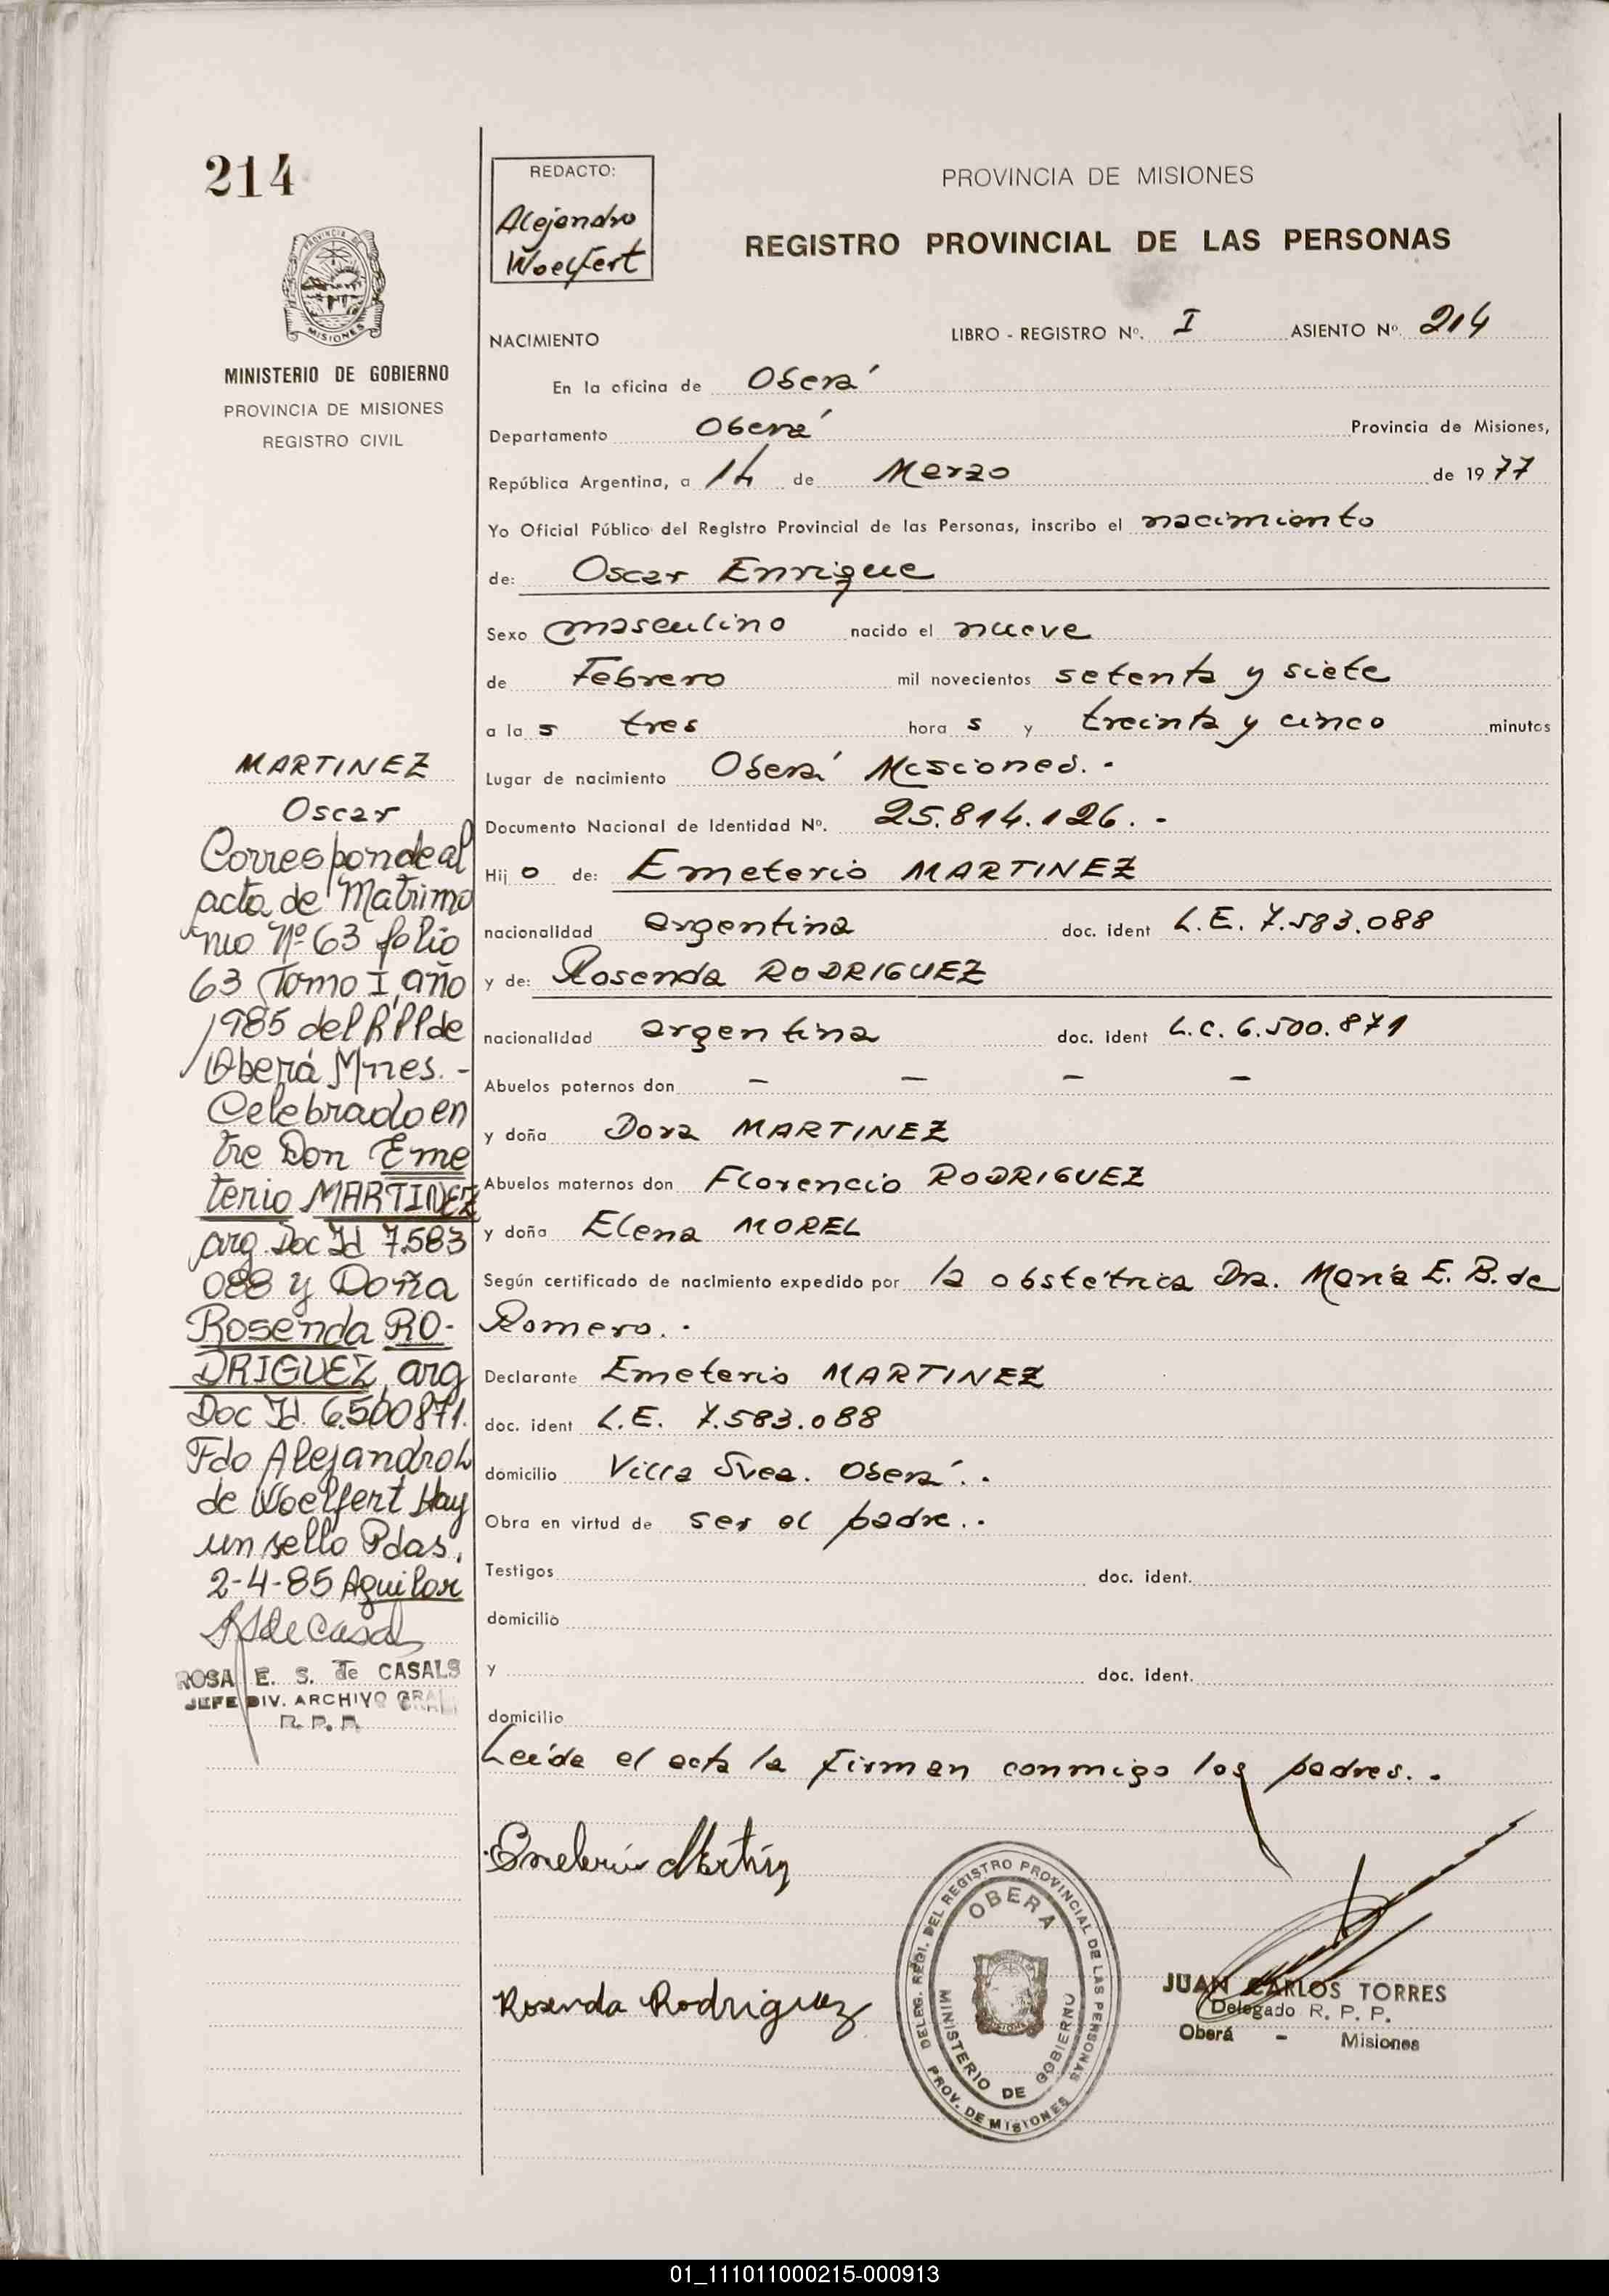 214
PROVINCIA DE
MISIONES
MINISTERIO DE GOBIERNO
PROVINCIA DE MISIONES
REGISTRO CIVIL
MARTINEZ
Oscar
Corresponde al
acta de Matrimo
nio Nº 63 folio
63 Tomo I año
1985 del R.P.P de
Oberá Mnes. -
Celebrado en
tre Don Eme
terio MARTINEZ
arg. Doc Id 7.583
088 y Doña
Rosenda RO-
DRIGUEZ, arg
Doc Id. 6.500871.
Fdo Alejandro L
de Woelfert Hay
un sello Pdas.
2-4-85 Aguilar
ROSA E. S. de CASALS
JEFE DIV. ARCHIVO GRAL
R. P. P.
REDACTO:
Alejandro
Woelfert
PROVINCIA DE MISIONES
REGISTRO PROVINCIAL DE LAS PERSONAS
NACIMIENTO LIBRO - REGISTRO Nº. I ASIENTO Nº. 214
En la oficina de Oberá
Departamento Oberá Provincia de Misiones,
República Argentina, a 14 de Marzo de 1977
Yo Oficial Público del Registro Provincial de las Personas, inscribo el nacimiento
de: Oscar Enrique
Sexo masculino nacido el nueve
de Febrero mil novecientos setenta y siete
a la s tres hora s y treinta y cinco minutos
Lugar de nacimiento Oberá Misiones. -
Documento Nacional de Identidad Nº. 25.814.126. -
Hij o de: Emeterio MARTINEZ
nacionalidad argentina doc. ident L.E. 7.583.088
y de: Rosenda RODRIGUEZ
nacionalidad argentina doc. ident L.C. 6.500.871
Abuelos paternos don - - - -
y doña Dora MARTINEZ
Abuelos maternos don Florencio RODRIGUEZ
y doña Elena MOREL
Según certificado de nacimiento expedido por la obstétrica Dra. María E. B. de
Romero. -
Declarante Emeterio MARTINEZ
doc. ident L.E. 7.583.088
domicilio Villa Svea. Oberá. -
Obra en virtud de ser el padre. -
Testigos doc. ident.
domicilio
y doc. ident.
domicilio
Leída el acta la firman conmigo los padres. -
Rosenda Rodriguez
DELEG. REGI. DEL REGISTRO PROVINCIAL DE LAS PERSONAS
PROV. DE MISIONES
OBERA
MINISTERIO DE GOBIERNO
JUAN CARLOS TORRES
Delegado R. P. P.
Oberá - Misiones
01_111011000215-000913